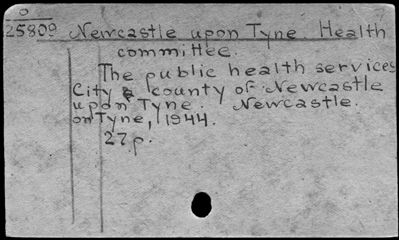 0
25809 Newcastle upon Tyne. Health
committee.
The public health services
City & county of Newcastle
upon Tyne. Newcastle.
on Tyne, 1944.
27p.